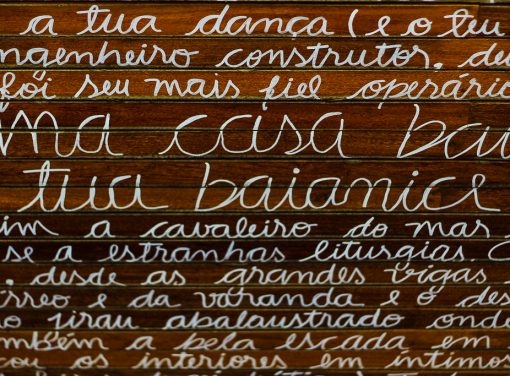 a tua dança (e o teu
ngenheiro construtor, de
foi seu mais fiel operário
ma casa bai
tua baianice
im a cavaleiro do mar
se a estranhas liturgias.
. desde as grandes vigas
rreo e da varanda e o des
o jirau abalaustrado onde
mbém a bela escada em
cou os interiores em íntimos